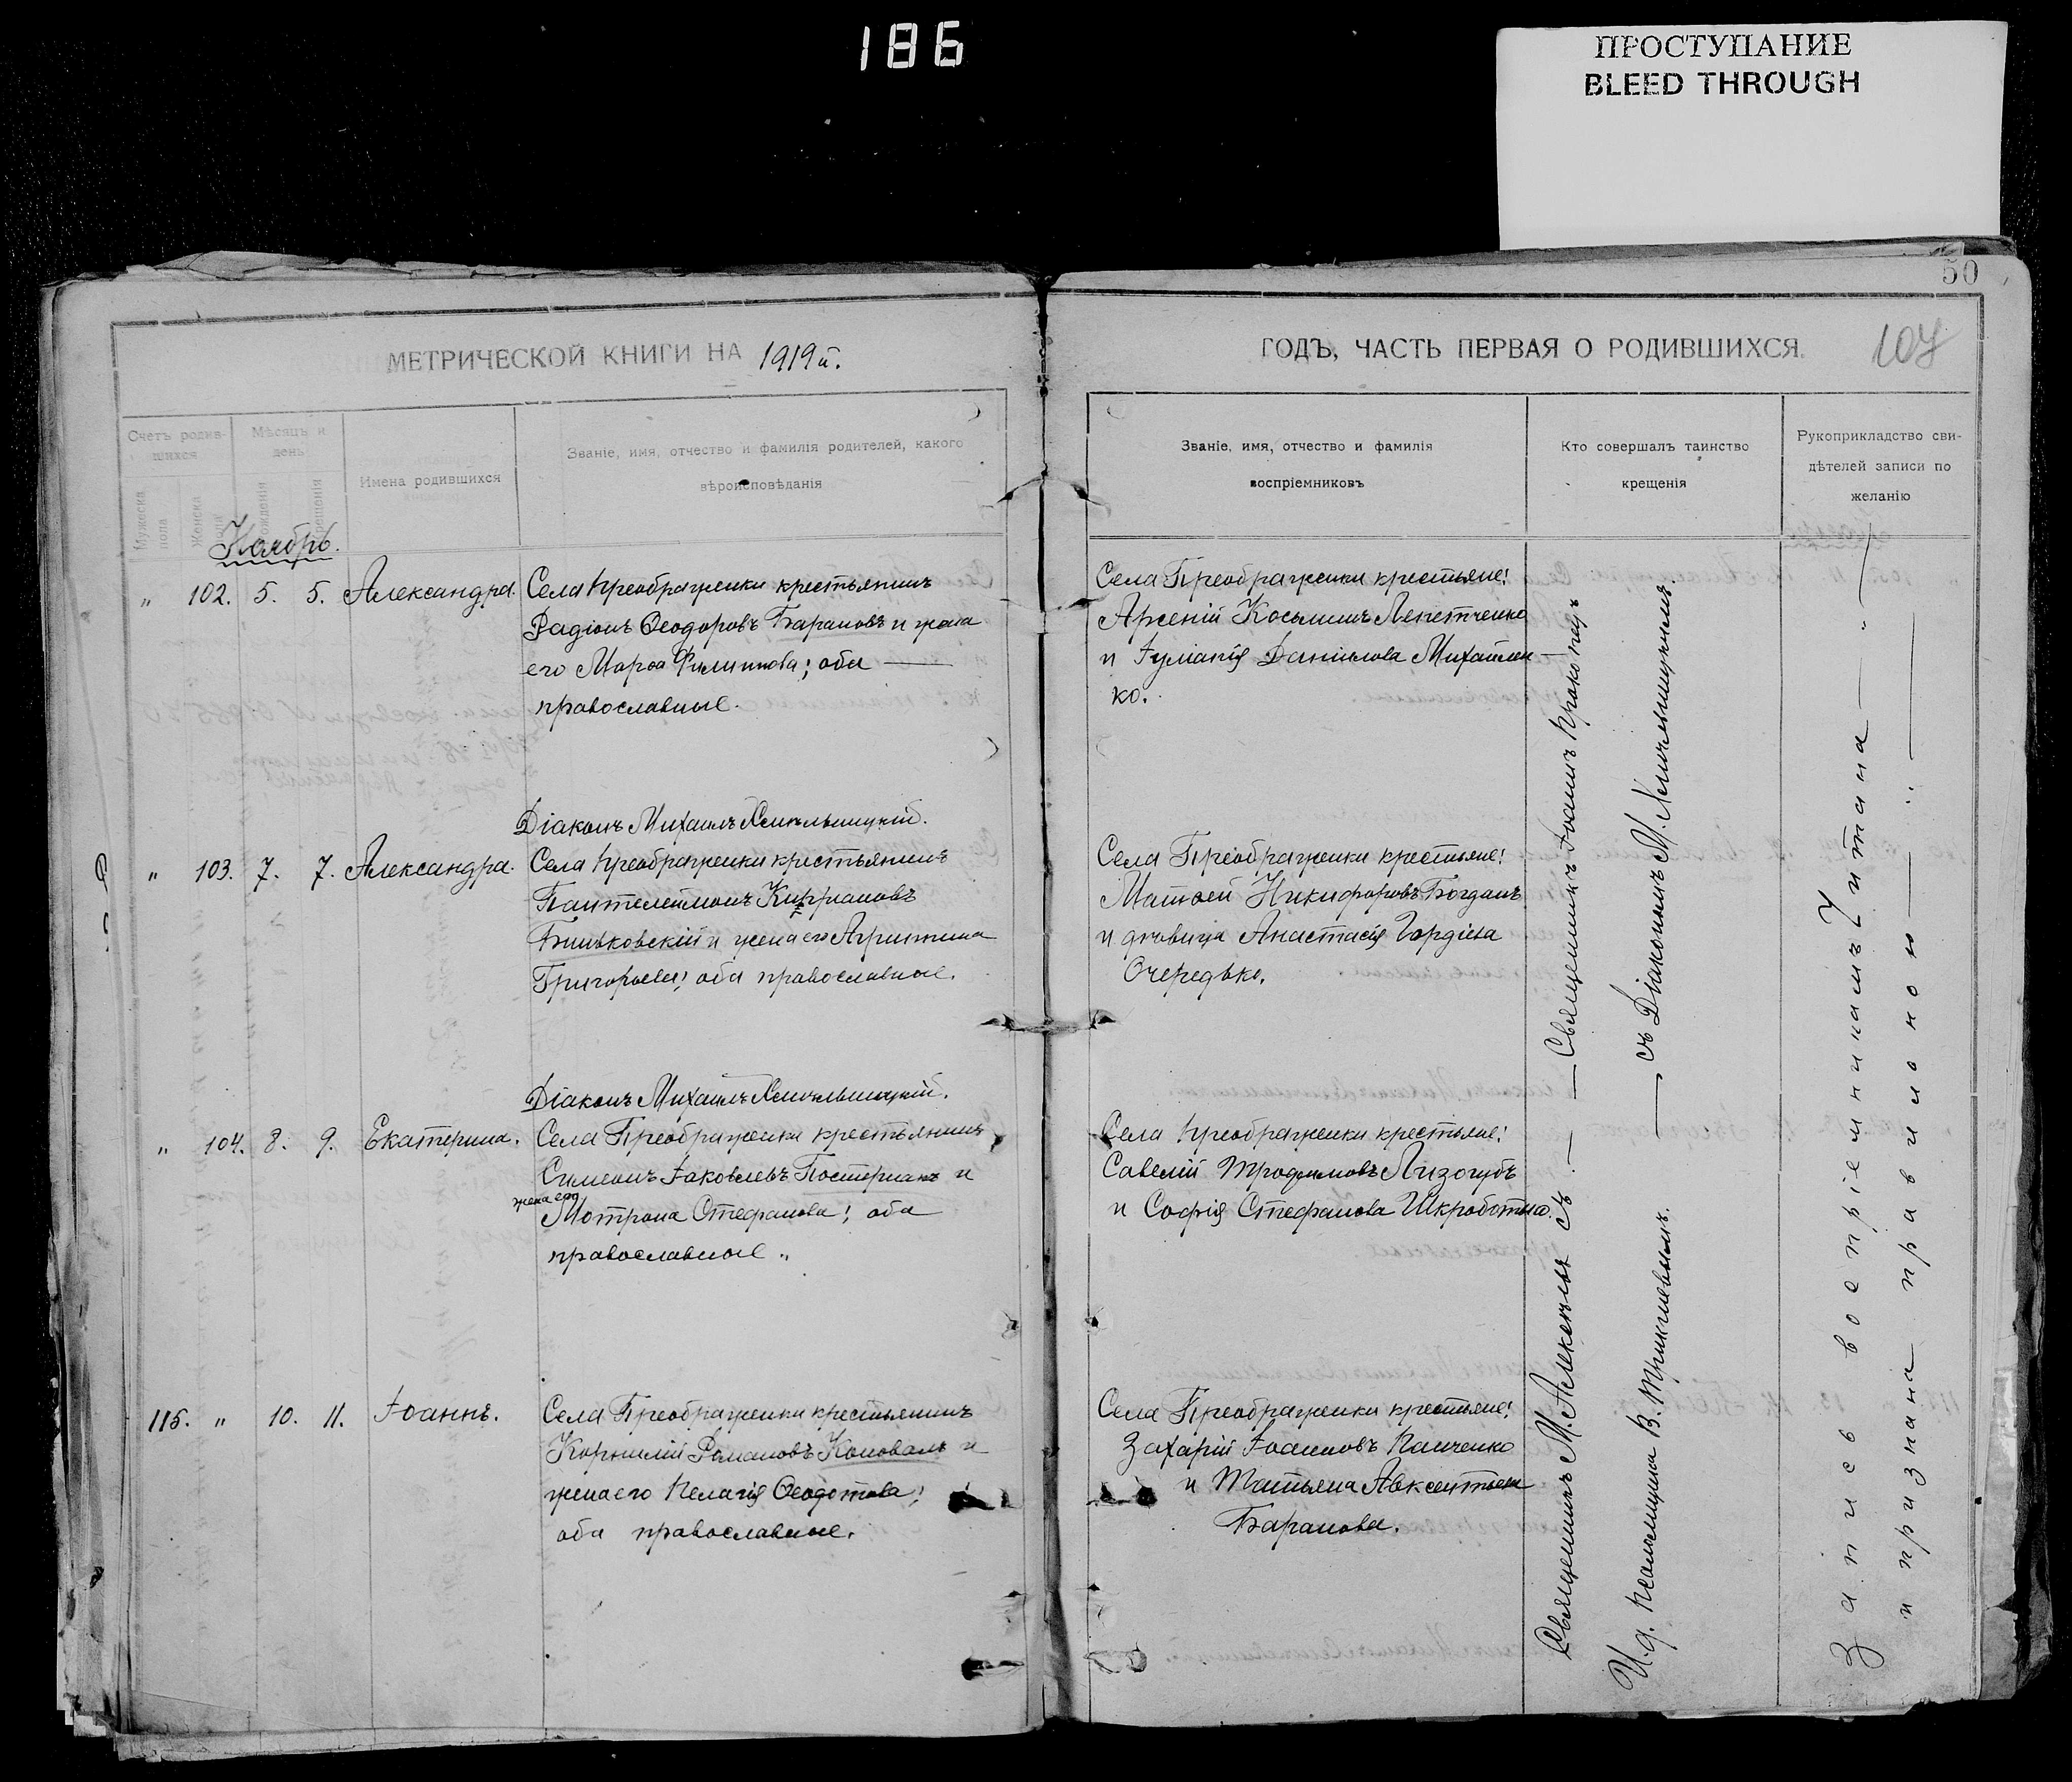 186
ПРОСТУПАНИЕ
BLEED THROUGH
50
107
МЕТРИЧЕСКОЙ КНИГИ НА 1919й.
Счетъ родив-
шихся
Мѣсяцъ и
день
Мужеска
пола
Женска
Имена родившихся
Званіе, имя, отчество и фамилія родителей, какого
вѣроисповѣданія
Ноябрь.
" 102. 5. 5. Александра.
Села Преображенки крестьянинъ
Радіонъ Ѳеодоровъ Барановъ и жена
его Марѳа Филиппова; оба
православные.
Діаконъ Михаилъ Хмельницкій.
" 103. 7. 7. Александра.
Села Преображенки крестьянинъ
Пантелеимонъ Кипріановъ
Биньковскій и жена его Агрипина
Григорьева; оба православные.
Діаконъ Михаилъ Хмельницкій.
" 104. 8. 9. Екатерина.
Села Преображенки крестьянинъ
Симеонъ Іаковлевъ Постернакъ и
жена его
Мотрона Стефанова; оба
православные.
115. " 10. 11. Іоаннъ.
Села Преображенки крестьянинъ
Корнилій Романовъ Коновалъ и
жена его Пелагія Ѳеодотова;
оба православные.
ГОДЪ, ЧАСТЬ ПЕРВАЯ О РОДИВШИХСЯ.
Званіе, имя, отчество и фамилія
воспріемниковъ
Кто совершалъ таинство
крещенія
Рукоприкладство сви-
дѣтелей записи по
желанію
Села Преображенки крестьяне:
Арсеній Косьминъ Лепетченко
и Іуліанія Даніилова Михайлен-
ко.
Села Преображенки крестьяне:
Матѳей Никифоровъ Богданъ
и дѣвица Анастасія Гордіева
Очередько.
Села Преображенки крестьяне:
Савелій Трофимовъ Лизогубъ
и Софія Стефанова Шкроботько.
Села Преображенки крестьяне:
Захарій Іоанновъ Панченко
и Татьяна Авксентьева
Баранова.
Священникъ М. съ. — Священникъ Іоаннъ
И. д. Псаломщика В. — съ Діакономъ М. Хмельницкимъ.
Запись воспріемникамъ читана — " —
и признана правильною — " —